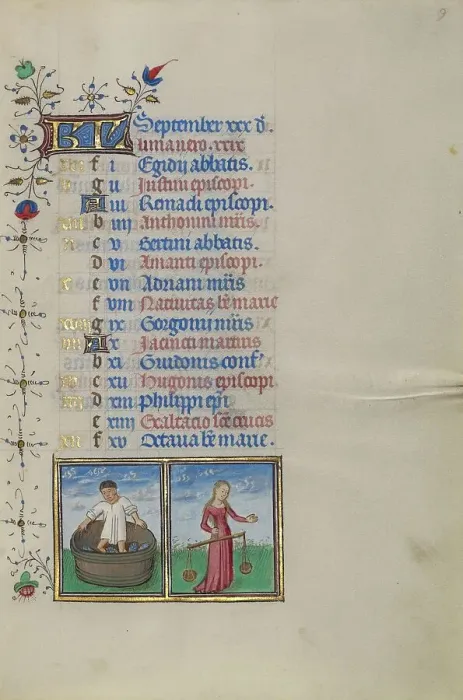 9
KL September xxx d.
luna vero. xxix
f i Egidij abbatis.
g ii Iustini episcopi.
A iii Remacli episcopi.
b iiii Anthonini mr̄is.
c v Bertini abbatis.
d vi Amanti episcopi.
e vii Adriani mr̄is
f viii Natiuitas bē marie
g ix Gorgonij mr̄is
A x Iacincti martiris
b xi Guidonis conf'
c xii Hugonis episcopi
d xiii Philippi epī
e xiiii Exaltacio scē crucis
f xv Octaua bē marie.